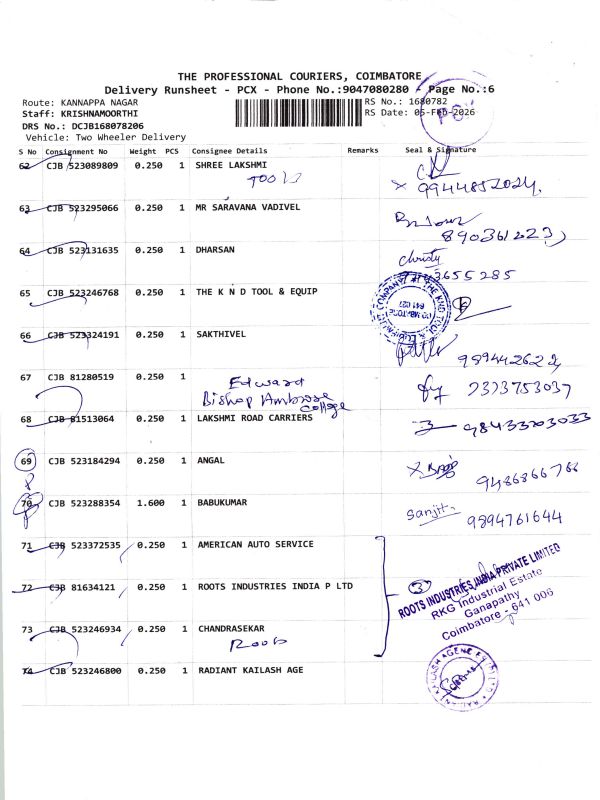 THE PROFESSIONAL COURIERS, COIMBATORE
Delivery Runsheet - PCX - Phone No.:9047080280 - Page No.:6
Route: KANNAPPA NAGAR
RS No.: 1680782
Staff: KRISHNAMOORTHI
RS Date: 05-FEB-2026
DRS No.: DCJB168078206
Vehicle: Two Wheeler Delivery
S No Consignment No Weight PCS Consignee Details Remarks Seal & Signature
62 CJB 523089809 0.250 1 SHREE LAKSHMI
TOOLS
9944852024
63 CJB 523295066 0.250 1 MR SARAVANA VADIVEL
64 CJB 523131635 0.250 1 DHARSAN
Christy
65 CJB 523246768 0.250 1 THE K N D TOOL & EQUIP
66 CJB 523324191 0.250 1 SAKTHIVEL
67 CJB 81280519 0.250 1
Edward
Bishop Ambrose
College
68 CJB 81513064 0.250 1 LAKSHMI ROAD CARRIERS
69 CJB 523184294 0.250 1 ANGAL
9486866766
70 CJB 523288354 1.600 1 BABUKUMAR
Sanjit
9894761644
71 CJB 523372535 0.250 1 AMERICAN AUTO SERVICE
72 CJB 81634121 0.250 1 ROOTS INDUSTRIES INDIA P LTD
3
ROOTS INDUSTRIES INDIA PRIVATE LIMITED
RKG Industrial Estate
Ganapathy
Coimbatore - 641 006
73 CJB 523246934 0.250 1 CHANDRASEKAR
Roots
74 CJB 523246800 0.250 1 RADIANT KAILASH AGE